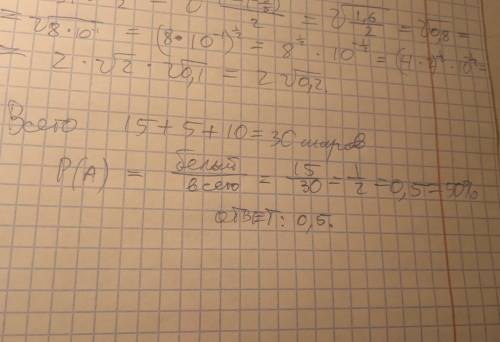 = √(1,6/2) = √0,8 =
= √(8·10⁻¹) = (8·10⁻¹)^½ = 8^½ · 10^-½ =
= 2·√2·√0,1 = 2√0,2.
Всего 15+5+10=30 шаров
P(A) = белый/всего = 15/30 = 1/2 = 0,5 = 50%
ОТВЕТ: 0,5.